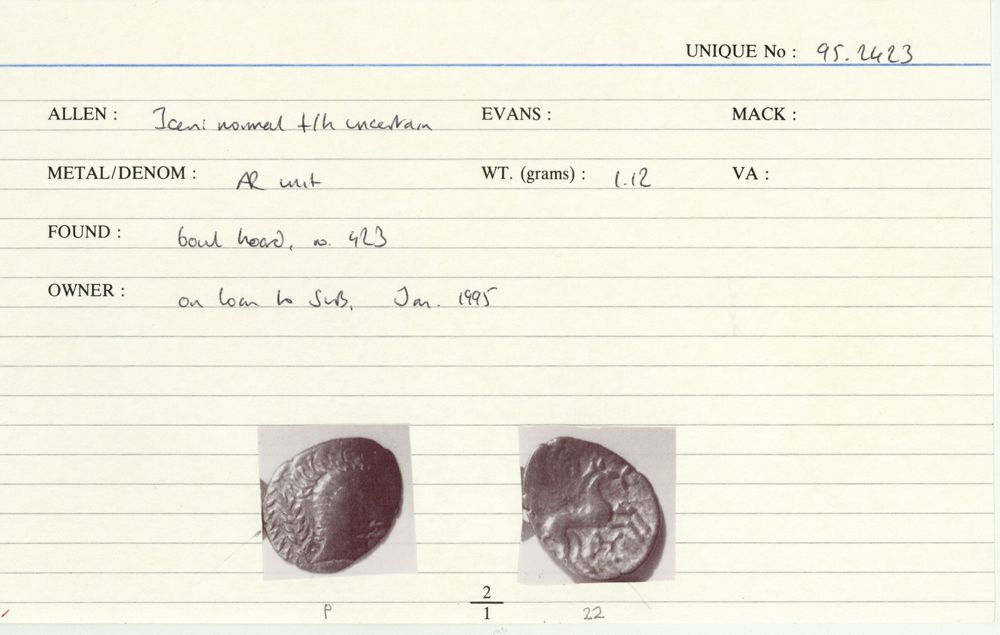 UNIQUE No : 95.2423
ALLEN : Iceni normal f/h uncertain EVANS : MACK :
METAL/DENOM : AR unit WT. (grams) : 1.12 VA :
FOUND : bowl hoard, no. 423
OWNER : on loan to SWB, Jan. 1995
2
1
P 22